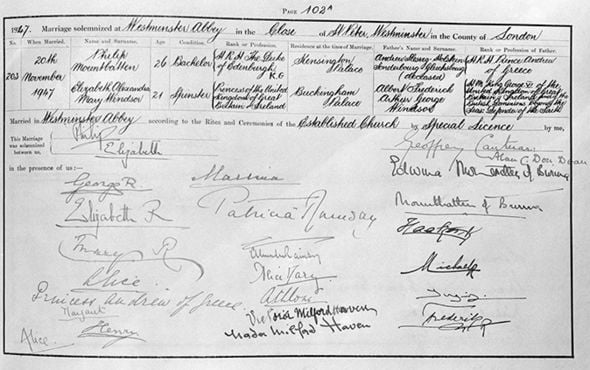 PAGE 102A
1947. Marriage solemnized at Westminster Abbey in the Close of St Peter, Westminster in the County of London
No. When Married. Name and Surname. Age Condition. Rank or Profession. Residence at the time of Marriage. Father's Name and Surname. Rank or Profession of Father.
203 20th November 1947 Philip Mountbatten 26 Bachelor H R H The Duke of Edinburgh K G Kensington Palace Andrew (deceased) H R H Prince Andrew of Greece
Elizabeth Alexandra Mary Windsor 21 Spinster Princess of the United Kingdom of Great Britain & Ireland Buckingham Palace Albert Frederick Arthur George Windsor H M King George VI of the United Kingdom of Great Britain, Ireland and the British Dominions beyond the Seas Defender of the Faith
Married in Westminster Abbey according to the Rites and Ceremonies of the Established Church by Special Licence by me,
This Marriage was solemnized between us,
Philip
Elizabeth
Geoffrey Cantuar:
Alan C. Don Dean
in the presence of us:—
George R.
Elizabeth R
Mary R
Alice
Princess Andrew of Greece
Margaret
Henry
Alice.
Marina
Patricia Ramsay
Alice Mary
Athlone
Victoria Milford Haven
Nada Milford Haven
Edwina Mountbatten of Burma
Mountbatten of Burma
Haakon R
Michael
Frederik R